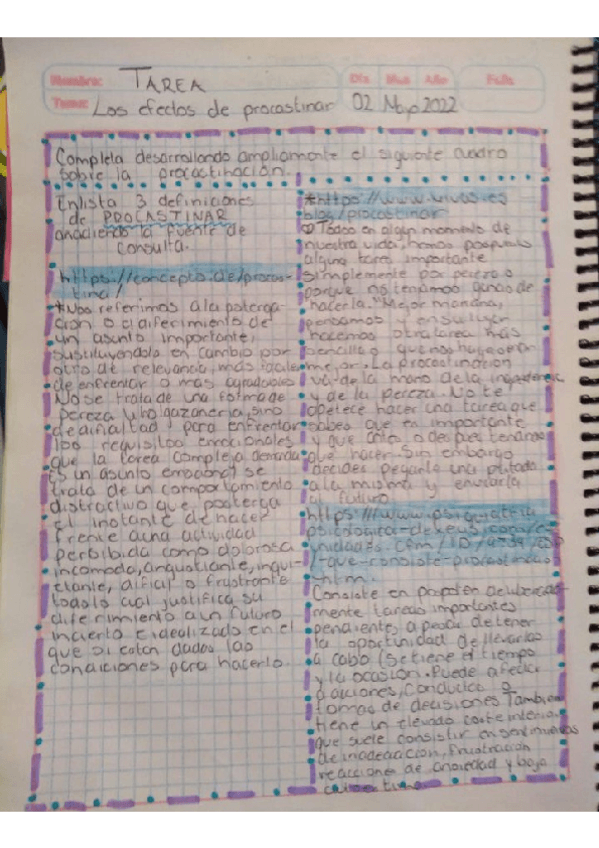 Nombre: TAREA
Día Mes Año Folio
Tema: Los efectos de procastinar 02 Mayo 2022
Completa desarrollando ampliamente el siguiente cuadro
sobre la procactinación.
Enlista 3 definiciones
de PROCASTINAR
anadiendo la fuente de
consulta.
https://concepto.de/procras-
tinar/
*Nos referimos a la poterga-
cion o el diferimiento de
un asunto importante,
sustituyendolo en cambio por
otro de relevancia, mas faciles
de enfrentar o mas agradables
No se trata de una forma de
pereza u holgazaneria, sino
de dificultad para enfrentar
los requisitos emocionales
que la tarea compleja demanda
Es un asunto emocional se
trata de un comportamiento
distractivo que posterga
el instante de hacer
frente a una actividad
perbibida como dolorosa
incomoda, angustiante, inqui-
etante, dificil o frustrante
todo lo cual justifica su
diferimiento a un futuro
incierto e idealizado en el
que si estan dadas las
condiciones para hacerlo.
*https://www.vivas.es
blog/procastinar
Todos en algun momento de
nuestra vida, hemos pospuesto
alguna tarea importante
simplemente por pereza o
porque no teniamos ganas de
hacerla. "Mejor mañana,
pensamos y en su lugar
hacemos otra tarea más
sencilla que nos haga sentir
mejor. La procastinacion
va de la mano de la
y de la pereza. No te
apetece hacer una tarea que
sabes que es importante
y que antes o despues tendras
que hacer. Sin embargo
decides pegarle una patada
a la misma y enviarla
al futuro.
https://www.psiquiatria
psicologica-dexeus.com/es
unidades.cfm/ID/
-que-consiste-procrastinacion
.htm.
Consiste en posponer deliberada-
mente tareas importantes
pendiente, a pesar de tener
la oportunidad de llevarlas
a cabo (se tiene el tiempo
y la ocasion. Puede afectar
a acciones, conductas o
tomas de decisiones Tambien
tiene un elevado coste interno.
que suele consistir en sentimientos
de inadecuacion, frustracion
reacciones de ansiedad y baja
autoestima